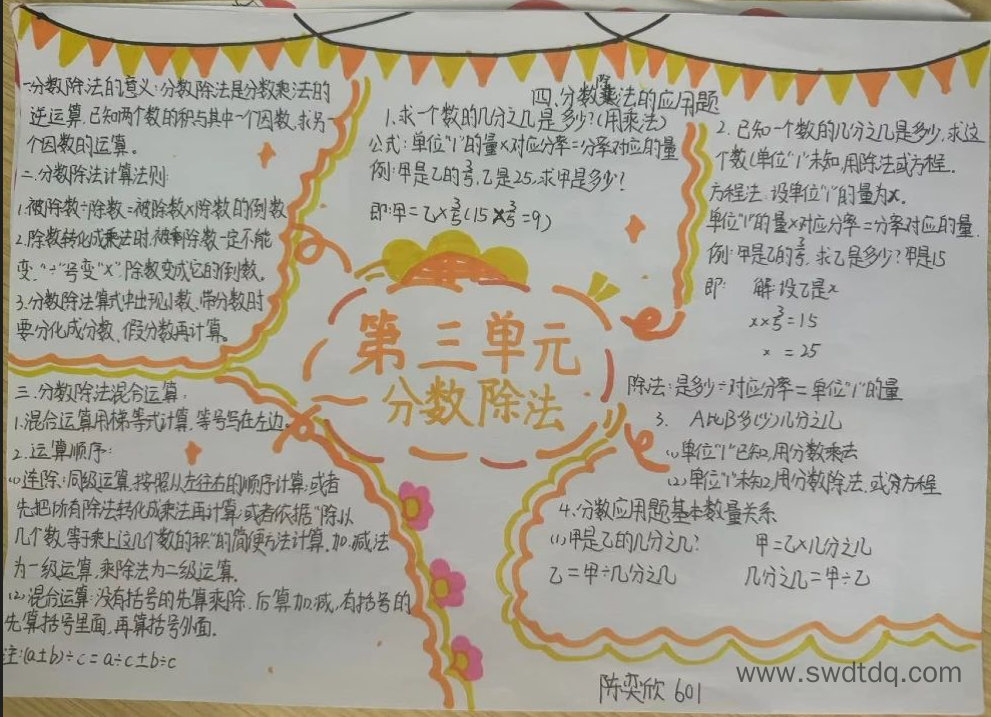 一.分数除法的意义:分数除法是分数乘法的
逆运算,已知两个数的积与其中一个因数,求另一
个因数的运算。
二.分数除法计算法则:
1.被除数÷除数=被除数×除数的倒数
2.除数转化成乘法时,被除数一定不能
变,“÷”号变“×”,除数变成它的倒数。
3.分数除法算式中出现小数,带分数时
要分化成分数、假分数再计算。
三.分数除法混合运算:
1.混合运算用梯等式计算,等号写在左边。
2.运算顺序:
(1)连除:同级运算,按照从左往右的顺序计算;或者
先把所有除法转化成乘法再计算;或者依据“除以
几个数,等于乘上这几个数的积”的简便方法计算,加.减法
为一级运算,乘除法为二级运算。
(2)混合运算:没有括号的先算乘除,后算加.减,有括号的
先算括号里面,再算括号外面。
注:(a±b)÷c=a÷c±b÷c
第三单元
分数除法
四.分数除法的应用题
1.求一个数的几分之几是多少?(用乘法)
公式:单位“1”的量×对应分率=分率对应的量
例:甲是乙的3/5,乙是25,求甲是多少?
即:甲=乙×3/5(15×3/5=9)
2.已知一个数的几分之几是多少,求这
个数(单位“1”未知,用除法或方程.
方程法:设单位“1”的量为x.
单位“1”的量×对应分率=分率对应的量.
例:甲是乙的3/5,求乙是多少?甲是15
即: 解:设乙是x
x×3/5=15
x =25
除法:是多少÷对应分率=单位“1”的量
3. A比B多(少)几分之几
(1)单位“1”已知,用分数乘法
(2)单位“1”未知,用分数除法,或方程
4.分数应用题基本数量关系
(1)甲是乙的几分之几? 甲=乙×几分之几
乙=甲÷几分之几 几分之几=甲÷乙
陈奕欣 601
www.swdtdq.com